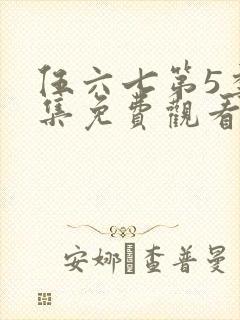 伍六七第5季
集免費觀看
安娜·查普曼